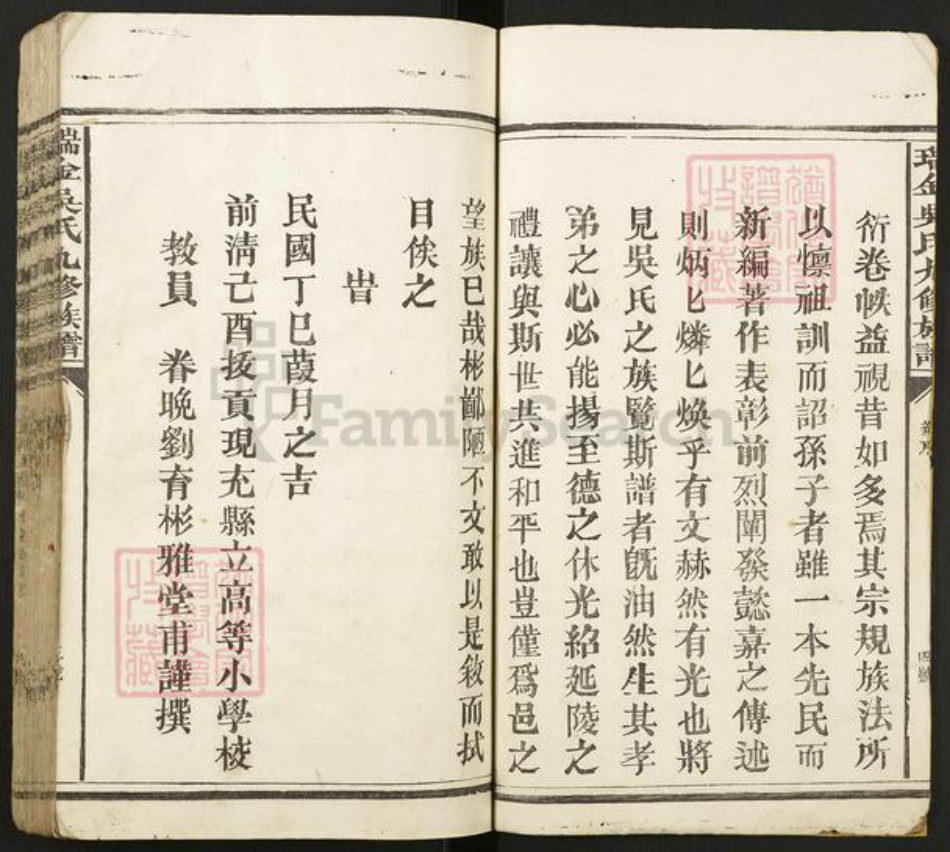 瑞金吳氏九修族譜
衍卷帙益視昔如多焉其宗規族法所
以懔祖訓而詔孫子者雖一本先民而
新編著作表彰前烈闡發懿嘉之傳述
則炳匕燐匕煥乎有文赫然有光也將
見吳氏之族覽斯譜者旣油然生其孝
弟之心必能揚至德之休光紹延陵之
禮讓與斯世共進和平也豈僅爲邑之
望族巳哉彬鄙陋不文敢以是敘而拭
目俟之
旹
民國丁巳葭月之吉
前淸己酉拔貢現充縣立高等小學校
教員 眷晚劉育彬雅堂甫謹撰
瑞金吳氏九修族譜
FamilySearch